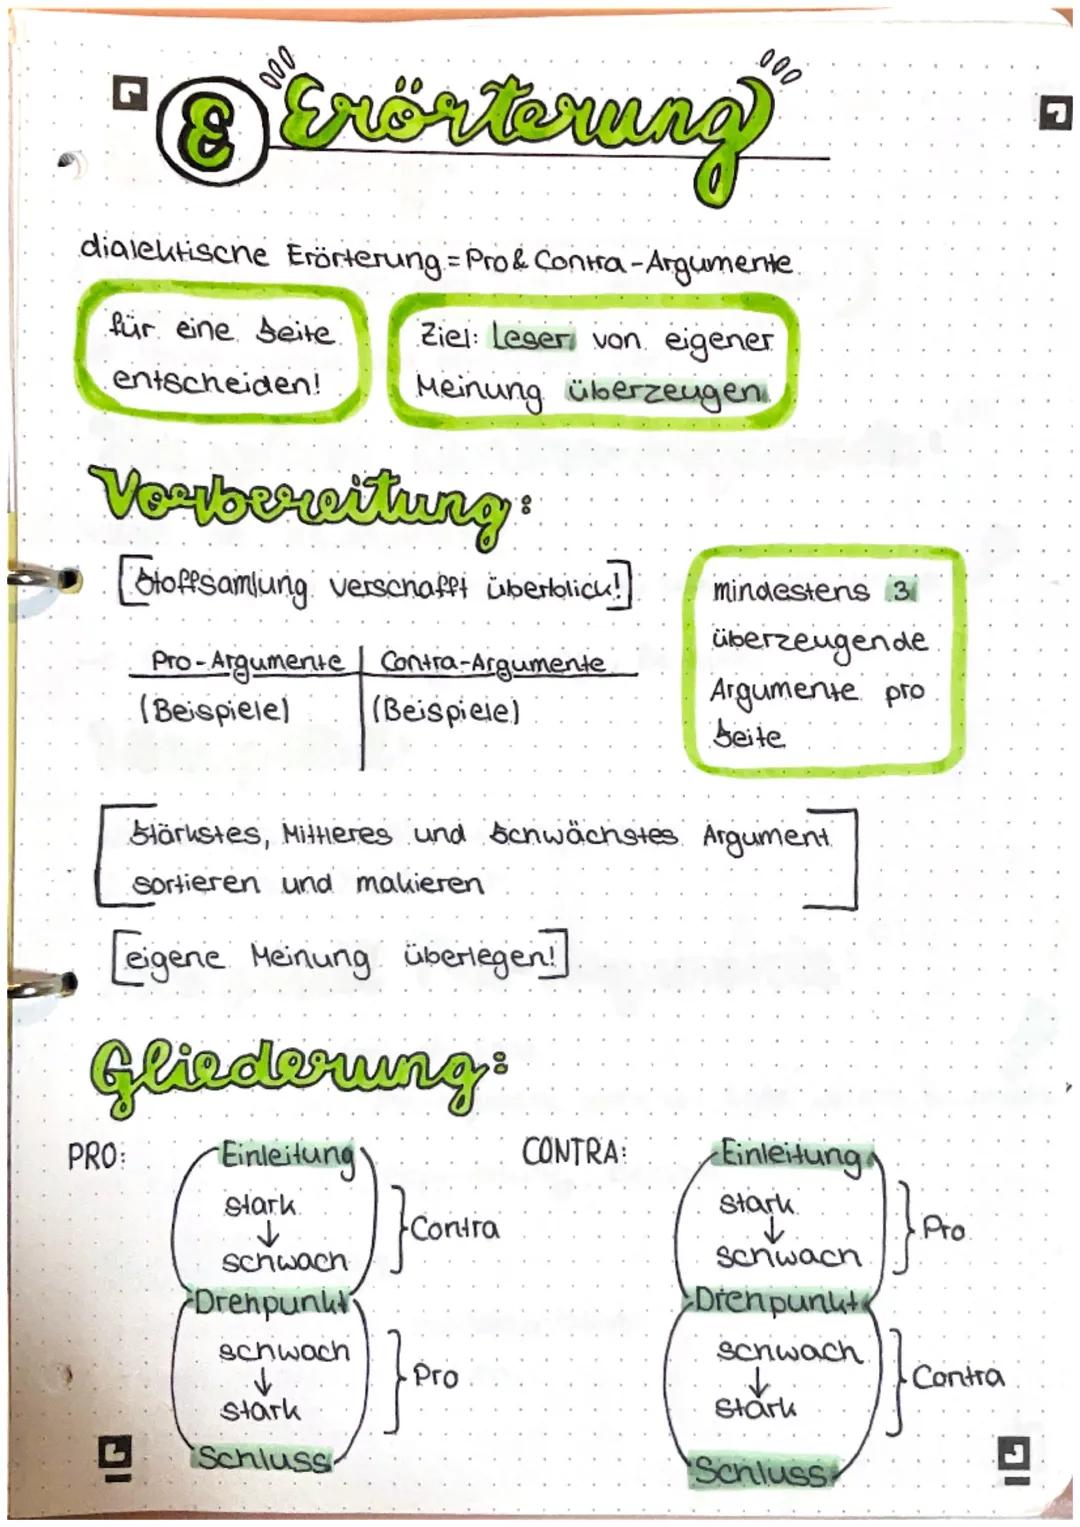 E Erörterung
dialektische Erörterung = Pro & Contra-Argumente
für eine Seite
entscheiden!
Ziel: Leser von eigener
Meinung überzeugen
Vorbereitung:
[Stoffsamlung verschafft überblick!]
mindestens 3
überzeugende
Argumente pro
Seite
Pro-Argumente Contra-Argumente
(Beispiele) (Beispiele)
[Stärkstes, Mittleres und Schwächstes Argument
sortieren und makieren]
[eigene Meinung überlegen!]
Gliederung:
PRO:
Einleitung
stark
↓
schwach
} Contra
Drehpunkt
schwach
↓
stark
} Pro
Schluss
CONTRA:
Einleitung
stark
↓
schwach
} Pro
Drehpunkt
schwach
↓
stark
} Contra
Schluss